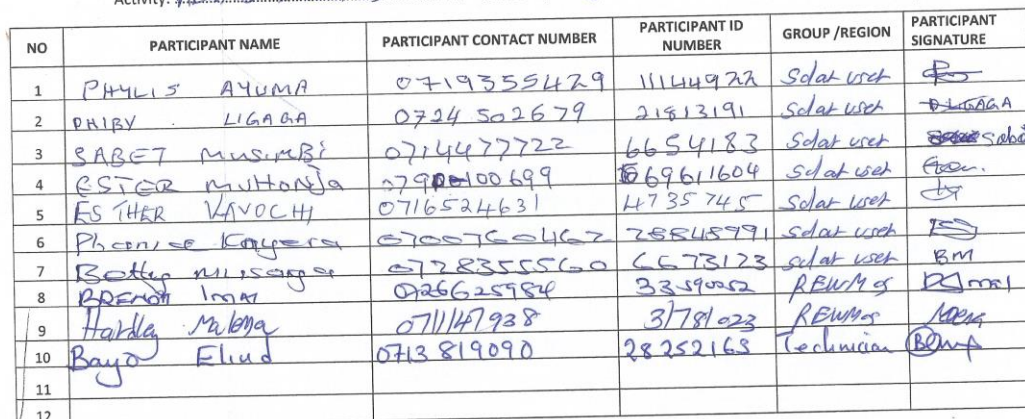 Activity:
NO PARTICIPANT NAME PARTICIPANT CONTACT NUMBER PARTICIPANT ID NUMBER GROUP /REGION PARTICIPANT SIGNATURE
1 PHYLIS AYUMA 0719355429 11144922 Solar user
2 PHIBY LIGAGA 0724 502679 21813191 Solar user LIGAGA
3 SABET MUSIMBI 0714477722 6654183 Solar user
4 ESTER MUHONJA 69611604 Solar user
5 ESTHER VAVOCHI 0716524631 4735745 Solar user
6 Kayera 0700760462 28848991 Solar user
7 Betty 0728355560 6673123 Solar user BM
8 0726625984
9 Malena 0711147938
10 Bayo Eliud 0713 819090 28252163 Technician
11
12